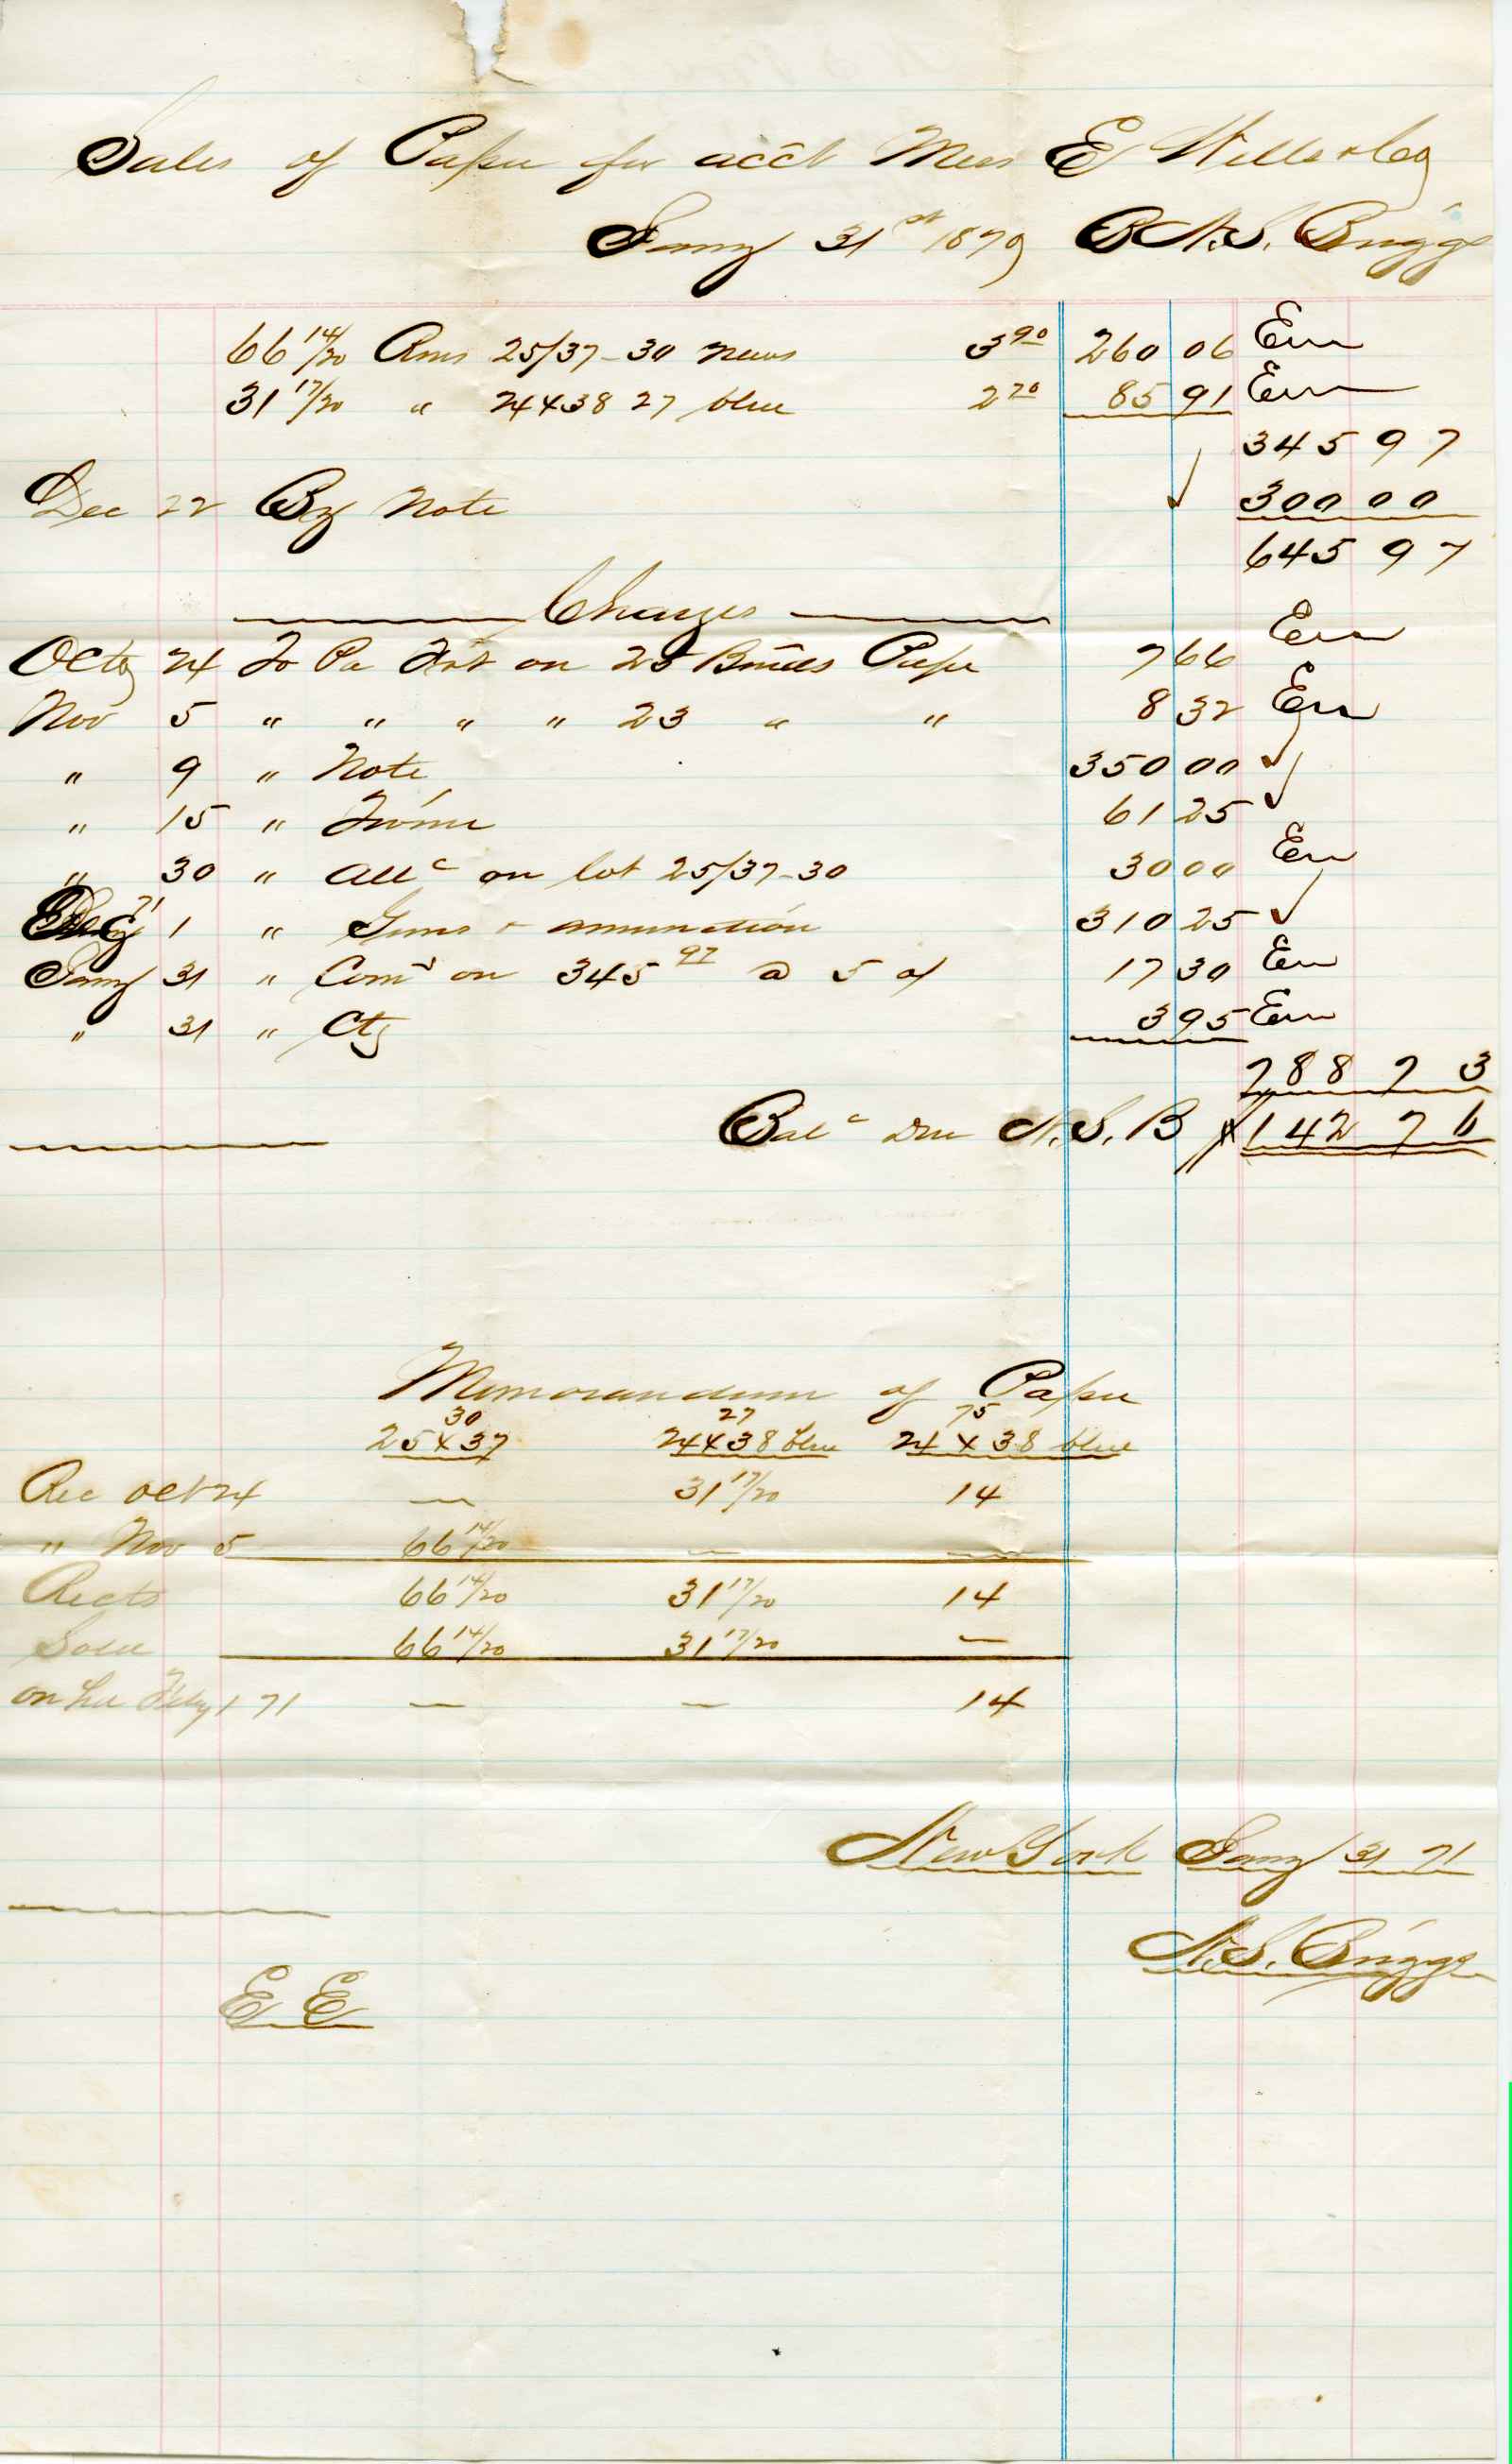 Sales of Paper for acct Mess E Wells & Co
Jany 31st 1879 B N.S. Briggs
66 14/20 Rms 25/37-30 news 3 90 260 06 Em
31 17/20 " 24x38 27 blue 2 70 85 91 Em
345 97
Dec 22 By Note 300 00
645 97
Charges Em
Oct 24 To Pa Frt on 25 Bndls Paper 7 66
Nov 5 " " " " 23 " " 8 32 Em
" 9 " Note 350 00
" 15 " 61 25
" 30 " Allc on lot 25/37-30 30 00 Em
71 1 " Guns & amunition 310 25
Jany 31 " Com on 345 97 @ 5 % 17 30 Em
" 31 " Ctg 3 95 Em
788 73
Balc Due N.S.B $142 76
Memorandum of Paper
30 27 75
25 x 37 24x38 blue 24 x 38 blue
Rec Oct 24 — 31 17/20 14
" Nov 5 66 14/20 — —
Rects 66 14/20 31 17/20 14
Sold 66 14/20 31 17/20 —
on hd Feby 1 71 — — 14
New York Jany 31 71
N.S. Briggs
E E